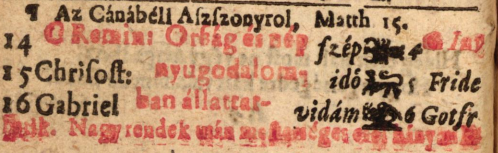 ¶ Az Cánábéli Aſzſzonyrol, Matth 15.
14 C Remin: Orſág és nép ſzép 4
15 Chriſoſt: nyugodalom, idő 5 Fride
16 Gabriel ban állattat- vidám 6 Gotfr
Nagy rendek után